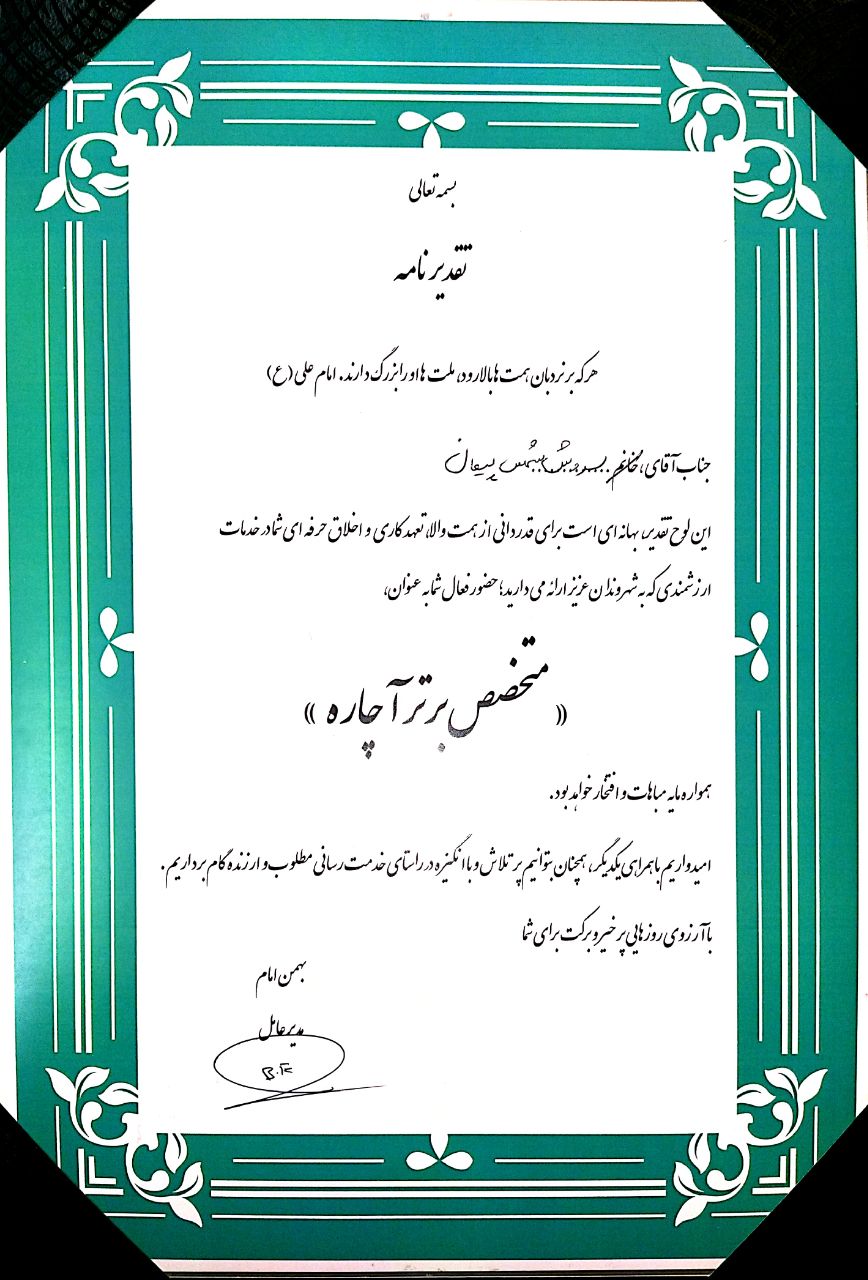 بسمه تعالی
تقدیرنامه
هر که بر نردبان همت ها بالا رود، ملت ها او را بزرگ دارند. امام علی (ع)
جناب آقای، خانم
این لوح تقدیر، بهانه ای است برای قدردانی از همت والا، تعهد کاری و اخلاق حرفه ای شما در خدمات
ارزشمندی که به شهروندان عزیز ارائه می دارید؛ حضور فعال شما به عنوان،
« متخصص برتر آچاره »
همواره مایه مباهات و افتخار خواهد بود.
امیدواریم با همراهی یکدیگر، همچنان بتوانیم پر تلاش و با انگیزه در راستای خدمت رسانی مطلوب و ارزنده گام برداریم.
با آرزوی روزهایی پر خیر و برکت برای شما
بهمن امام
مدیرعامل